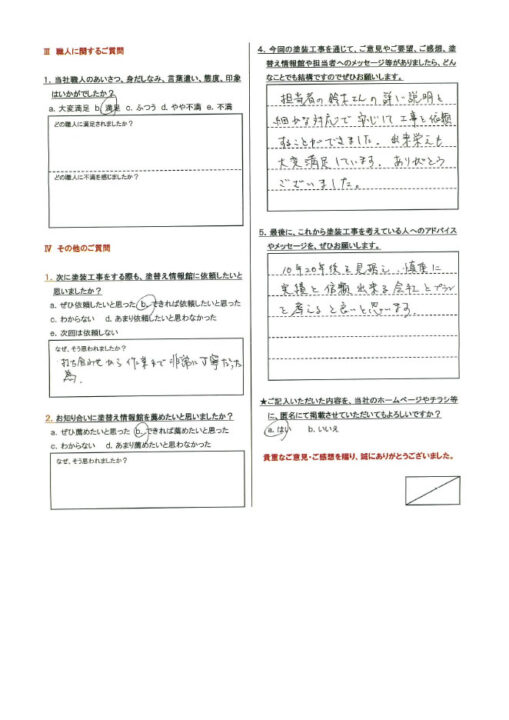 Ⅲ 職人に関するご質問
1. 当社職人のあいさつ、身だしなみ、言葉遣い、態度、印象
はいかがでしたか？
a. 大変満足 b. 満足 c. ふつう d. やや不満 e. 不満
どの職人に満足されましたか？
どの職人に不満を感じましたか？
Ⅳ その他のご質問
1. 次に塗装工事をする際も、塗替え情報館に依頼したいと
思いましたか？
a. ぜひ依頼したいと思った b. できれば依頼したいと思った
c. わからない d. あまり依頼したいと思わなかった
e. 次回は依頼しない
なぜ、そう思われましたか？
打ち合わせから作業まで非常に丁寧だった
為。
2. お知り合いに塗替え情報館を薦めたいと思いましたか？
a. ぜひ薦めたいと思った b. できれば薦めたいと思った
c. わからない d. あまり薦めたいと思わなかった
なぜ、そう思われましたか？
4. 今回の塗装工事を通じて、ご意見やご要望、ご感想、塗
替え情報館や担当者へのメッセージ等がありましたら、どん
なことでも結構ですのでぜひお願いします。
担当者の鈴木さんの詳しい説明と
細かな対応で安心して工事を依頼
することができました。出来栄えも
大変満足しています。ありがとう
ございました。
5. 最後に、これから塗装工事を考えている人へのアドバイス
やメッセージを、ぜひお願いします。
10年20年後を見据え、慎重に
実績と信頼出来る会社とプラン
を考えると良いと思います。
★ご記入いただいた内容を、当社のホームページやチラシ等
に、匿名にて掲載させていただいてもよろしいですか？
a. はい b. いいえ
貴重なご意見・ご感想を賜り、誠にありがとうございました。